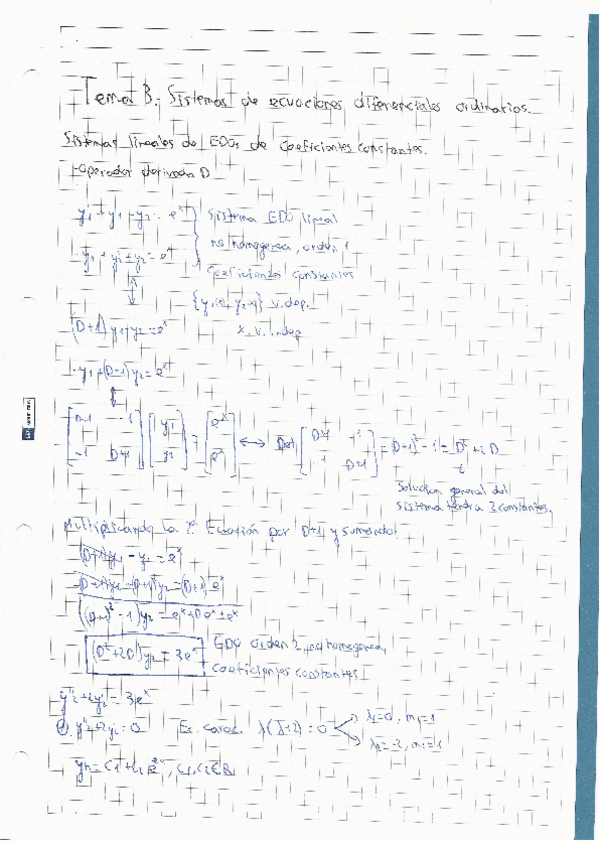 Tema 3. Sistemas de ecuaciones diferenciales ordinarias.
Sistemas lineales de EDOs de coeficientes constantes.
- operador derivada D
y₁' + y₁ - y₂ = eˣ } Sistema EDO lineal
no homogenea, orden 1
-y₁ + y₂' + y₂ = eˣ
coeficientes constantes
↕ v.dep.
(D+1) y₁ - y₂ = eˣ
x v. indep
-y₁ + (D+1) y₂ = eˣ
↕
[D+1 -1; -1 D+1] [y₁; y₂] = [eˣ; eˣ] ↔ = (D+1)² - 1 = D² + 2D
Solucion general del
sistema tendra 2 constantes.
Multiplicando la 2ª Ecuación por D+1 y sumando:
(D+1)y₁ - y₂ = eˣ
-(D+1)y₁ + (D+1)² y₂ = (D+1) eˣ
((D+1)² - 1) y₂ = eˣ + D eˣ + eˣ
(D² + 2D) y₂ = 3eˣ EDO orden 2, no homogenea,
coeficientes constantes
y₂'' + 2y₂' = 3eˣ
y₂'' + 2y₂' = 0 Ec. carac. λ(λ+2) = 0 λ₁ = 0, m₁ = 1
λ₂ = -2, m₂ = 1
yh = C₁ + C₂ , C₁, C₂ ∈ R